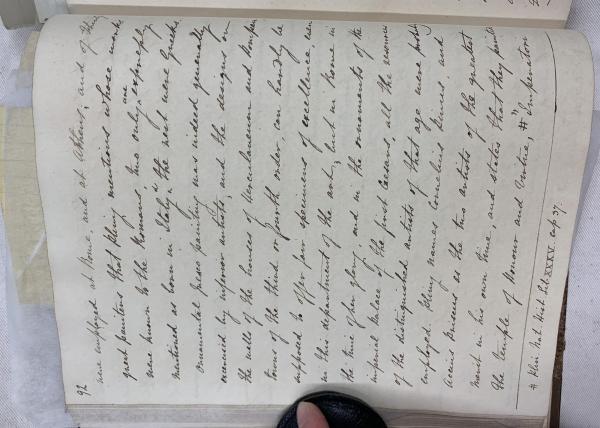 92
were employed at Rome, and at Athens; and of thirty
great painters that Pliny mentions whose works
were known to the Romans, two only are expressly
mentioned as born in Italy, "the rest were Greeks.
Ornamental fresco painting was indeed generally
executed by inferior artists; and the designs on
the walls of the houses of Herculaneum and Pompeii
towns of the third or fourth order, can hardly be
supposed to offer fair specimens of excellence, even
in this department of the art; but in Rome in
the time of her glory, and in the ornaments of the
imperial Palace of the first Caesars, all the
of the distinguished artists of that age were probably
employed. Pliny names Cornelius Pinus and
Accius Priscus as the two artists of the greatest
merit in his own time, and states that they painted
the temple of Honour and Virtue, # "Imperatori
# Plin. Nat. Hist. Lib XXXV. cap 37.